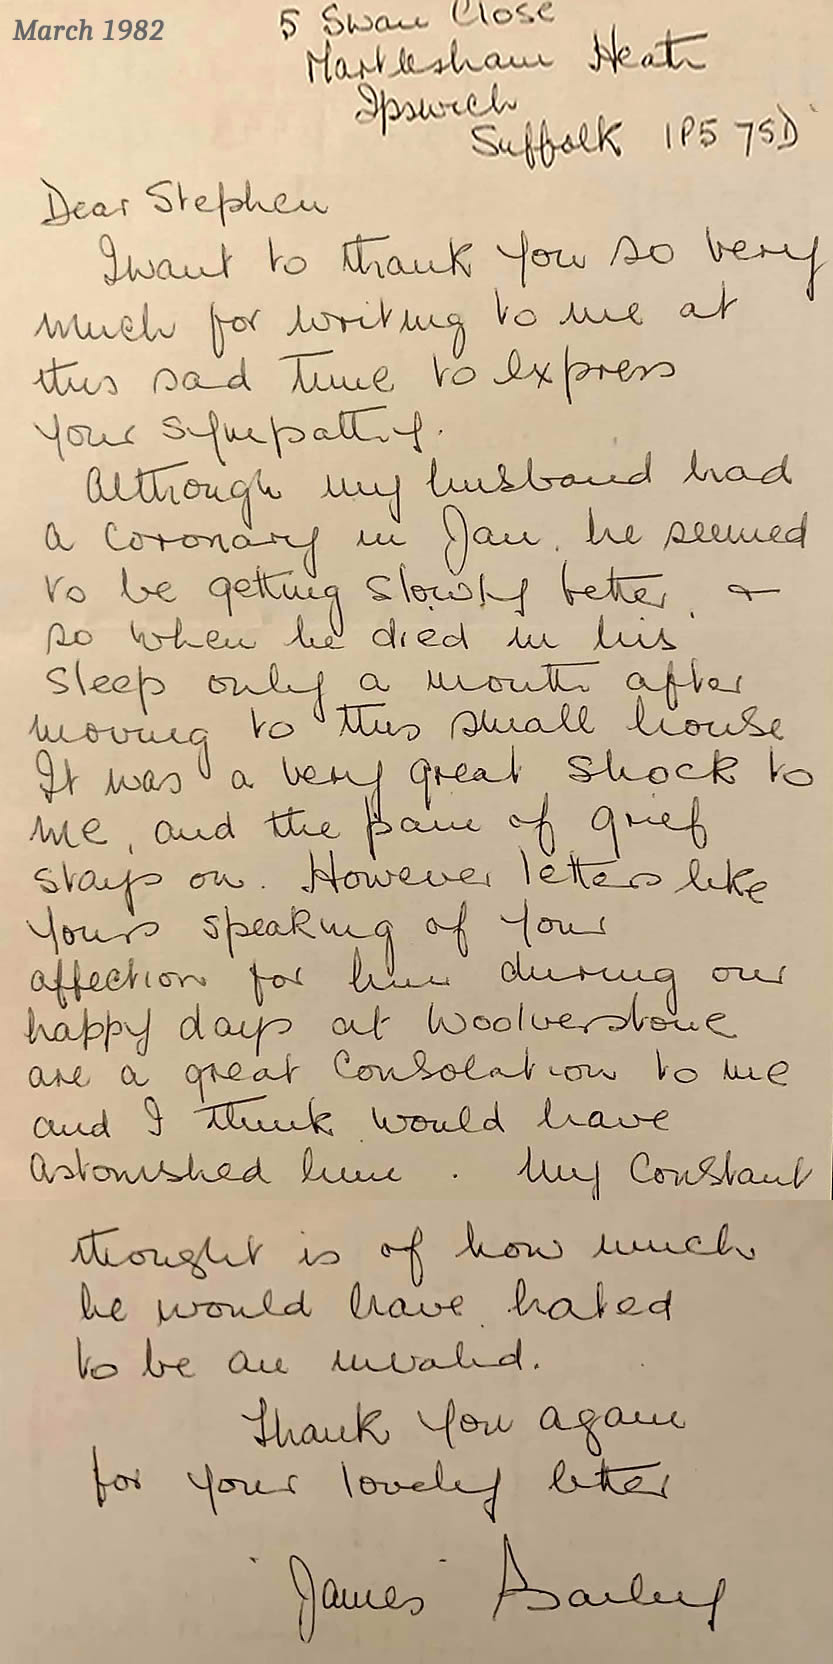 March 1982
5 Swan Close
Martlesham Heath
Ipswich
Suffolk IP5 7SD
Dear Stephen
I want to thank you so very
much for writing to me at
this sad time to express
your sympathy.
Although my husband had
a coronary in Jan. he seemed
to be getting slowly better, &
so when he died in his
sleep only a month after
moving to this small house
It was a very great shock to
me, and the pain of grief
stays on. However letters like
yours speaking of your
affection for him during our
happy days at Woolverstone
are a great consolation to me
and I think would have
astonished him. My constant
thought is of how much
he would have hated
to be an invalid.
Thank you again
for your lovely letter
"James" Bailey